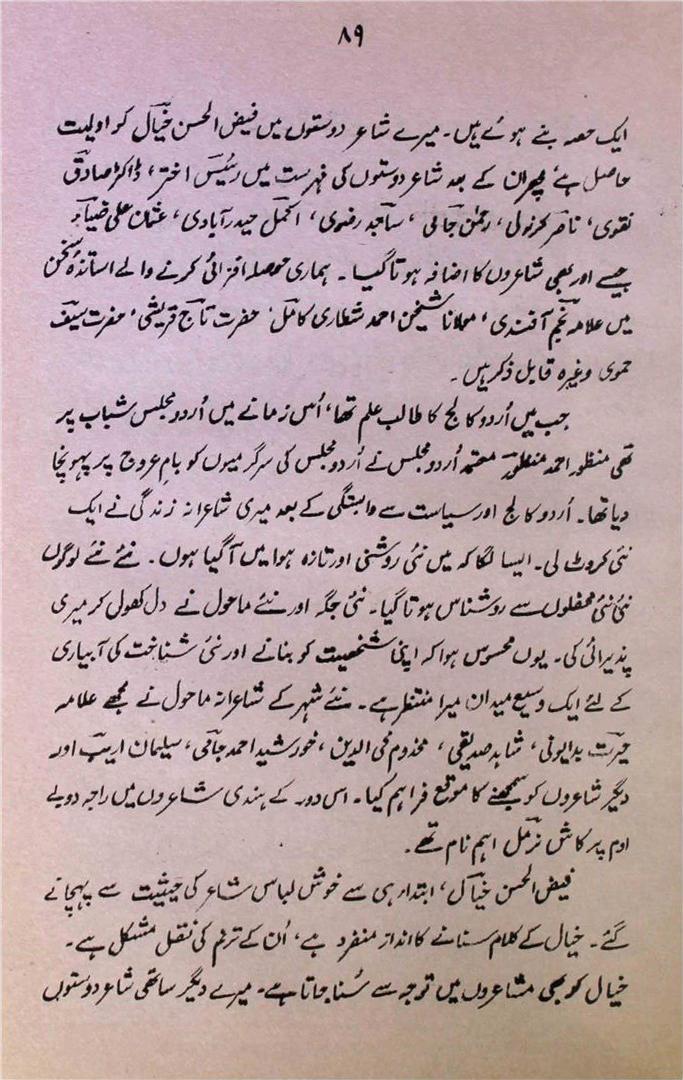 ۸۹
ایک حصہ بنے ہوئے ہیں۔ میرے شاعر دوستوں میں فیض الحسن خیال کو اولیت
حاصل ہے، پھر ان کے بعد شاعر دوستوں کی فہرست میں رئیس اختر، ڈاکٹر صادق
نقوی، ناصر کرنولی، رحمٰن جامی، ساجد رضوی، اکمل حیدرآبادی، عثمان علی ضیاء
جیسے اور بھی شاعروں کا اضافہ ہوتا گیا۔ ہماری حوصلہ افزائی کرنے والے اساتذۂ سخن
میں علامہ نجم آفندی، مولانا شیخن احمد شطاری کامل، حضرت تاج قریشی، حضرت سیف
حموی وغیرہ قابل ذکر ہیں۔
جب میں اُردو کالج کا طالب علم تھا، اُس زمانے میں اُردو مجلس شباب پر
تھی منظور احمد منظور معتمد اُردو مجلس نے اُردو مجلس کی سرگرمیوں کو بامِ عروج پر پہونچا
دیا تھا۔ اُردو کالج اور سیاست سے وابستگی کے بعد میری شاعرانہ زندگی نے ایک
نئی کروٹ لی۔ ایسا لگا کہ میں نئی روشنی اور تازہ ہوا میں آگیا ہوں۔ نئے نئے لوگوں
نئی نئی محفلوں سے روشناس ہوتا گیا۔ نئی جگہ اور نئے ماحول نے دل کھول کر میری
پذیرائی کی۔ یوں محسوس ہوا کہ اپنی شخصیت کو بنانے اور نئی شناخت کی آبیاری
کے لئے ایک وسیع میدان میرا منتظر ہے۔ نئے شہر کے شاعرانہ ماحول نے مجھے علامہ
حیرت بدایونی، شاہد صدیقی، مخدوم محی الدین، خورشید احمد جامی، سلیمان اریب اور
دیگر شاعروں کو سمجھنے کا موقع فراہم کیا۔ اس دور کے ہندی شاعروں میں راجہ دوبے
اوم پرکاش نرمل اہم نام تھے۔
فیض الحسن خیال، ابتدا ہی سے خوش لباس شاعر کی حیثیت سے پہچانے
گئے۔ خیال کے کلام سنانے کا انداز منفرد ہے، اُن کے ترنم کی نقل مشکل ہے۔
خیال کو بھی مشاعروں میں توجہ سے سُنا جاتا ہے۔ میرے دیگر ساتھی شاعر دوستوں